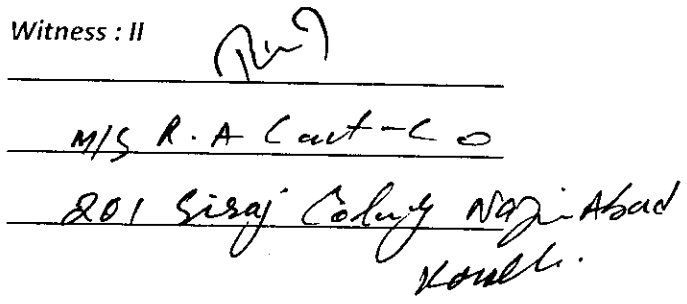 Witness : II
M/S R. A Cont-Co
201 Siraj Colony Nazim Abad
Karachi.